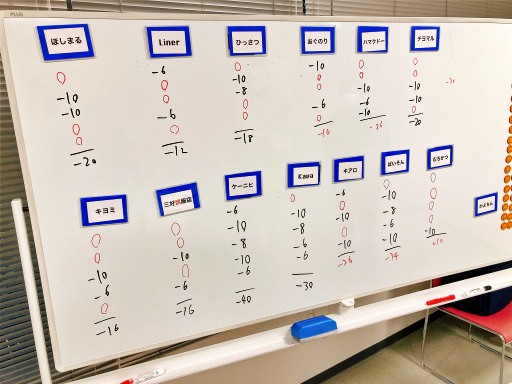 PLUS
ほしまる
0
-10
-10
0
0
-20
Liner
-6
0
0
-6
0
-12
ひっさつ
0
-10
-8
0
0
-18
おぐのり
-10
0
0
-6
0
-16
ハマケドー
0
0
-10
-6
-10
-26
チヨマル
0
0
-10
-10
0
-20
キヨミ
0
0
-10
-6
0
-16
三好 服店
0
0
-10
0
-6
-16
ケーニヒ
-6
-10
-8
-10
-6
-40
Kawa
0
-10
-8
-6
-6
-30
キアロ
-6
-10
0
0
-10
-26
ばいそん
0
-10
-8
-6
-10
-34
むらかつ
0
0
0
0
-10
-10